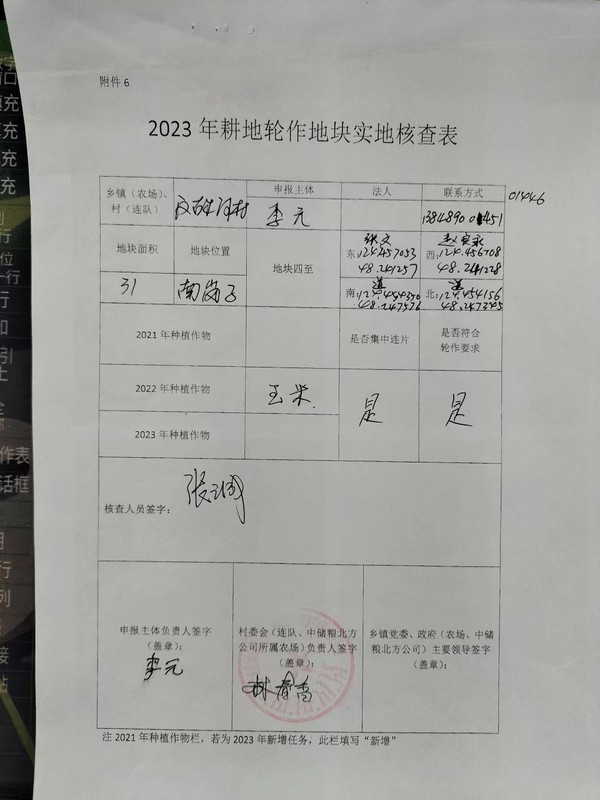 附件 6
2023 年耕地轮作地块实地核查表
01446
乡镇（农场）、村（连队）
申报主体
法人
联系方式
李元
地块面积
地块位置
地块四至
31
南岗子
东:124.457053
48.241257
西:124.456708
48.241228
南:
北:124.454156
2021 年种植作物
是否集中连片
是否符合轮作要求
2022 年种植作物
玉米
是
是
2023 年种植作物
核查人员签字：
申报主体负责人签字
（盖章）：
李元
村委会（连队、中储粮北方
公司所属农场）负责人签字
（盖章）：
乡镇党委、政府（农场、中储
粮北方公司）主要领导签字
（盖章）：
注 2021 年种植作物栏，若为 2023 年新增任务，此栏填写“新增”